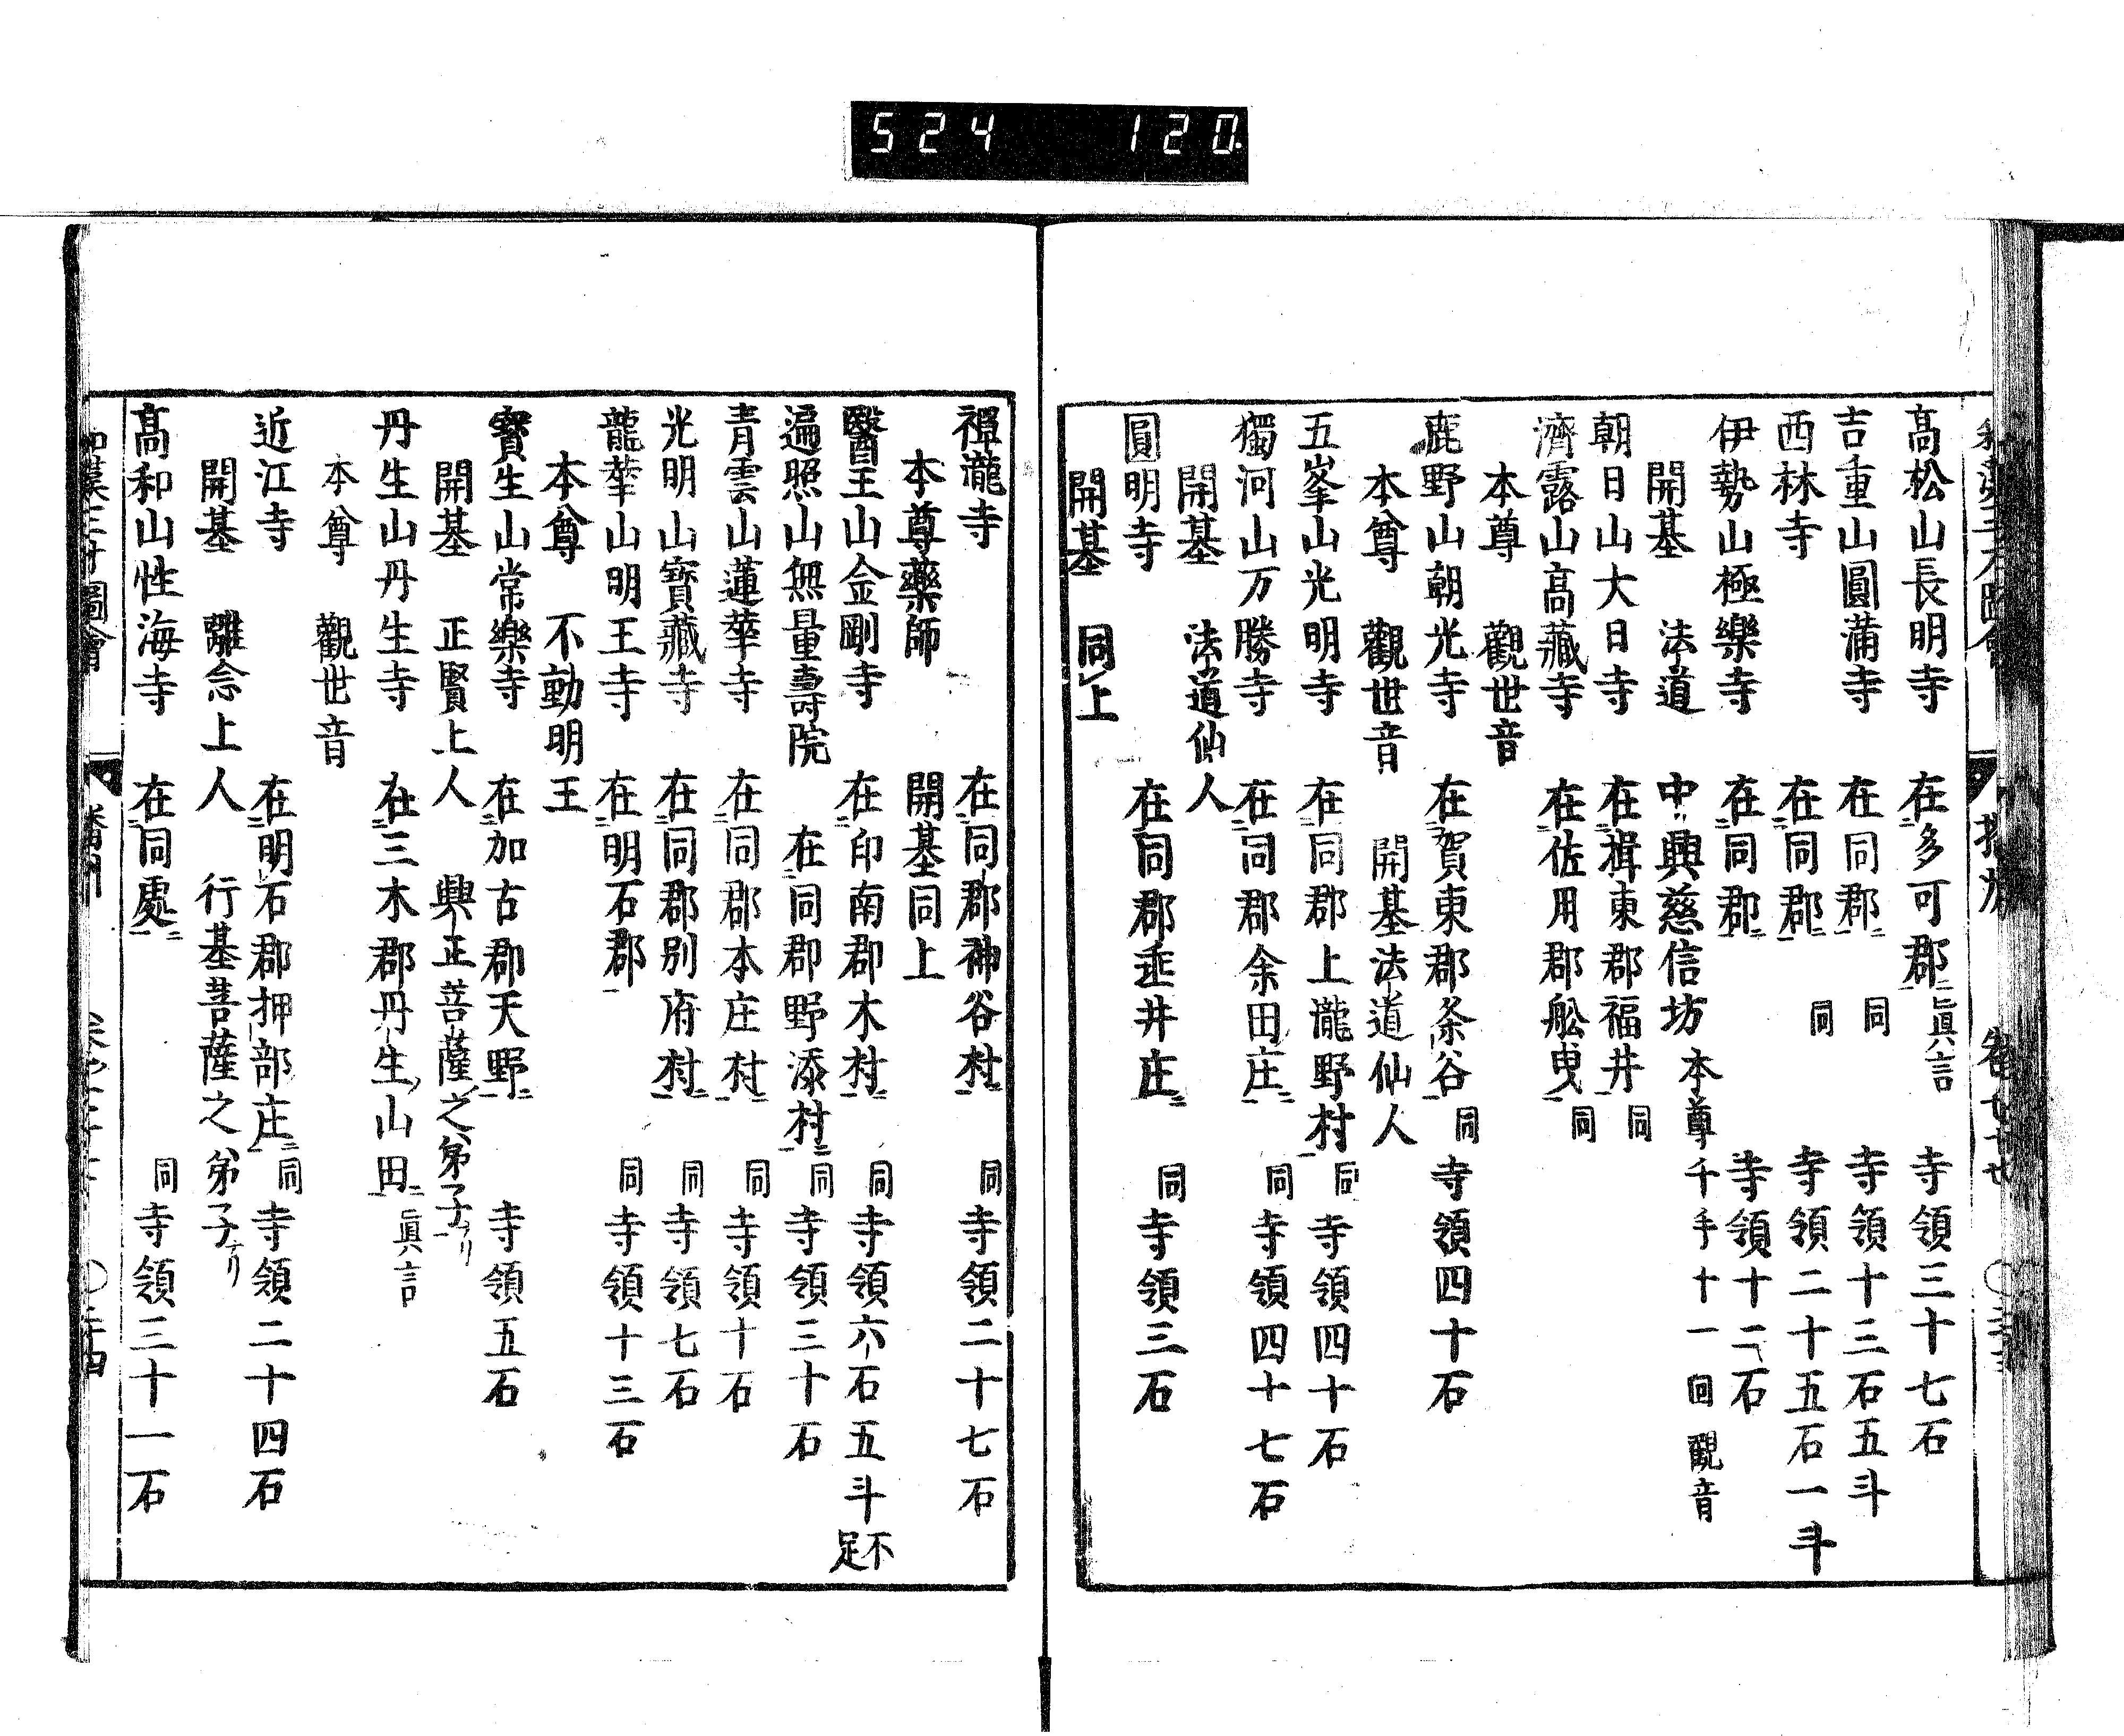 524 120
髙松山長明寺 在多可郡 眞言 寺領三十七石
吉重山圓蒲寺 在同郡 同 寺領十三石五斗
西林寺 在同郡 同 寺領二十五石一斗
伊勢山極樂寺 在同郡 寺領十二石
開基 法道 中興慈信坊 本尊千手十一回觀音
朝日山大日寺 在揖東郡福井 同
濟露山高藏寺 在佐用郡舩曳 同
本尊 觀世音
鹿野山朝光寺 在賀東郡条谷 同 寺領四十石
本尊 觀世音 開基法道仙人
五峯山光明寺 在同郡上瀧野村 同 寺領四十石
獨河山万勝寺 在同郡余田庄 同 寺領四十七石
開基 法道仙人
圓明寺 在同郡垂井庄 同 寺領三石
開基 同上
禪瀧寺 在同郡神谷村 同 寺領二十七石
本尊藥師 開基同上
醫王山金剛寺 在印南郡木村 同 寺領六石五斗不足
遍照山無量壽院 在同郡野添村 同 寺領三十石
青雲山蓮華寺 在同郡本庄村 同 寺領十石
光明山寳藏寺 在同郡別府村 同 寺領七石
龍華山明王寺 在明石郡 同 寺領十三石
本尊 不動明王
寳生山常樂寺 在加古郡天野 寺領五石
開基 正賢上人 興正菩薩之弟子ナリ
丹生山丹生寺 在三木郡丹生山田 眞言
本尊 觀世音
近江寺 在明石郡押部庄 同 寺領二十四石
開基 離念上人 行基菩薩之弟子ナリ
髙和山性海寺 在同處 同 寺領三十一石